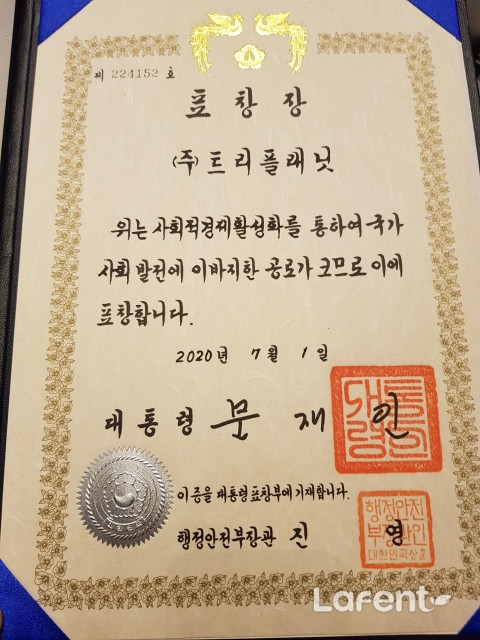 제 224152 호
표창장
(주)트리플래닛
위는 사회적경제활성화를 통하여 국가
사회 발전에 이바지한 공로가 크므로 이에
표창합니다.
2020년 7월 1일
대통령 문재인
이증을 대통령표창부에 기재합니다.
행정안전부장관 진영
Lafent